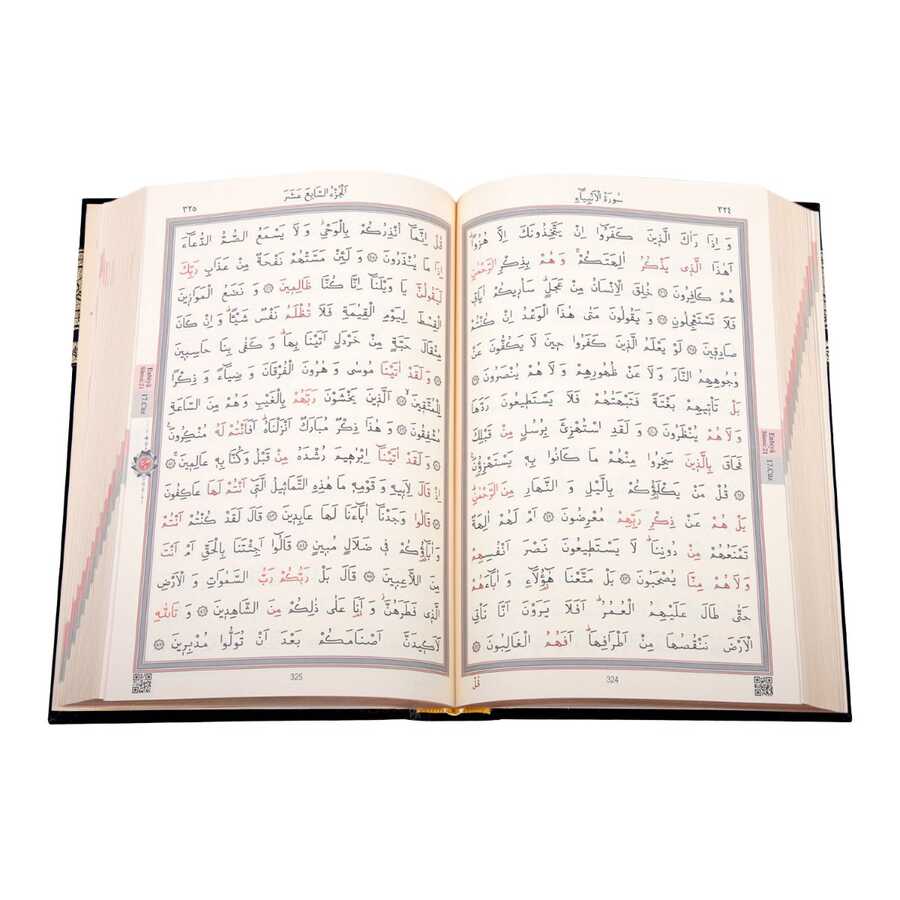 سُورَةُ الْاَنْبِيَاءِ
٣٢٤
وَ اِذَا رَاٰكَ الَّذٖينَ كَفَرُٓوا اِنْ يَتَّخِذُونَكَ اِلَّا هُزُوًاۜ
اَهٰذَا الَّذٖى يَذْكُرُ اٰلِهَتَكُمْۚ وَ هُمْ بِذِكْرِ الرَّحْمٰنِ
هُمْ كَافِرُونَ ۝ خُلِقَ الْاِنْسَانُ مِنْ عَجَلٍۜ سَاُرٖيكُمْ اٰيَاتٖى
فَلَا تَسْتَعْجِلُونِ ۝ وَ يَقُولُونَ مَتٰى هٰذَا الْوَعْدُ اِنْ كُنْتُمْ
صَادِقٖينَ ۝ لَوْ يَعْلَمُ الَّذٖينَ كَفَرُوا حٖينَ لَا يَكُفُّونَ عَنْ
وُجُوهِهِمُ النَّارَ وَ لَا عَنْ ظُهُورِهِمْ وَ لَا هُمْ يُنْصَرُونَ ۝
بَلْ تَاْتٖيهِمْ بَغْتَةً فَتَبْهَتُهُمْ فَلَا يَسْتَطٖيعُونَ رَدَّهَا
وَ لَا هُمْ يُنْظَرُونَ ۝ وَ لَقَدِ اسْتُهْزِئَ بِرُسُلٍ مِنْ قَبْلِكَ
فَحَاقَ بِالَّذٖينَ سَخِرُوا مِنْهُمْ مَا كَانُوا بِهٖ يَسْتَهْزِؤُ۫نَ
۝ قُلْ مَنْ يَكْلَؤُ۬كُمْ بِالَّيْلِ وَ النَّهَارِ مِنَ الرَّحْمٰنِۜ
بَلْ هُمْ عَنْ ذِكْرِ رَبِّهِمْ مُعْرِضُونَ ۝ اَمْ لَهُمْ اٰلِهَةٌ
تَمْنَعُهُمْ مِنْ دُونِنَاۜ لَا يَسْتَطٖيعُونَ نَصْرَ اَنْفُسِهِمْ
وَ لَا هُمْ مِنَّا يُصْحَبُونَ ۝ بَلْ مَتَّعْنَا هٰٓؤُ۬لَٓاءِ وَ اٰبَٓاءَهُمْ
حَتّٰى طَالَ عَلَيْهِمُ الْعُمُرُۜ اَفَلَا يَرَوْنَ اَنَّا نَاْتِى
الْاَرْضَ نَنْقُصُهَا مِنْ اَطْرَافِهَاۜ اَفَهُمُ الْغَالِبُونَ ۝
قُلْ
324
Enbiyâ
Sûresi 21
17.Cüz
اَلْجُزْءُ السَّابِعَ عَشَرَ
٣٢٥
قُلْ اِنَّمَٓا اُنْذِرُكُمْ بِالْوَحْىِۘ وَ لَا يَسْمَعُ الصُّمُّ الدُّعَٓاءَ
اِذَا مَا يُنْذَرُونَ ۝ وَ لَئِنْ مَسَّتْهُمْ نَفْحَةٌ مِنْ عَذَابِ رَبِّكَ
لَيَقُولُنَّ يَا وَيْلَنَٓا اِنَّا كُنَّا ظَالِمٖينَ ۝ وَ نَضَعُ الْمَوَازٖينَ
الْقِسْطَ لِيَوْمِ الْقِيٰمَةِ فَلَا تُظْلَمُ نَفْسٌ شَيْـًٔاۜ وَ اِنْ كَانَ
مِثْقَالَ حَبَّةٍ مِنْ خَرْدَلٍ اَتَيْنَا بِهَاۜ وَ كَفٰى بِنَا حَاسِبٖينَ
۝ وَ لَقَدْ اٰتَيْنَا مُوسٰى وَ هٰرُونَ الْفُرْقَانَ وَ ضِيَٓاءً وَ ذِكْرًا
لِلْمُتَّقٖينَۙ ۝ اَلَّذٖينَ يَخْشَوْنَ رَبَّهُمْ بِالْغَيْبِ وَ هُمْ مِنَ السَّاعَةِ
مُشْفِقُونَ ۝ وَ هٰذَا ذِكْرٌ مُبَارَكٌ اَنْزَلْنَاهُۜ اَفَاَنْتُمْ لَهُ مُنْكِرُونَ۟
۝ وَ لَقَدْ اٰتَيْنَٓا اِبْرٰهٖيمَ رُشْدَهُ مِنْ قَبْلُ وَ كُنَّا بِهٖ عَالِمٖينَۚ ۝
اِذْ قَالَ لِاَبٖيهِ وَ قَوْمِهٖ مَا هٰذِهِ التَّمَاثٖيلُ الَّتٖٓى اَنْتُمْ لَهَا عَاكِفُونَ
۝ قَالُوا وَجَدْنَٓا اٰبَٓاءَنَا لَهَا عَابِدٖينَ ۝ قَالَ لَقَدْ كُنْتُمْ اَنْتُمْ
وَ اٰبَٓاؤُ۬كُمْ فٖى ضَلَالٍ مُبٖينٍ ۝ قَالُٓوا اَجِئْتَنَا بِالْحَقِّ اَمْ اَنْتَ
مِنَ اللَّاعِبٖينَ ۝ قَالَ بَلْ رَبُّكُمْ رَبُّ السَّمٰوَاتِ وَ الْاَرْضِ
الَّذٖى فَطَرَهُنَّۘ وَ اَنَا۬ عَلٰى ذٰلِكُمْ مِنَ الشَّاهِدٖينَ ۝ وَ تَاللّٰهِ
لَاَكٖيدَنَّ اَصْنَامَكُمْ بَعْدَ اَنْ تُوَلُّوا مُدْبِرٖينَ ۝
325
Enbiyâ
Sûresi 21
17.Cüz